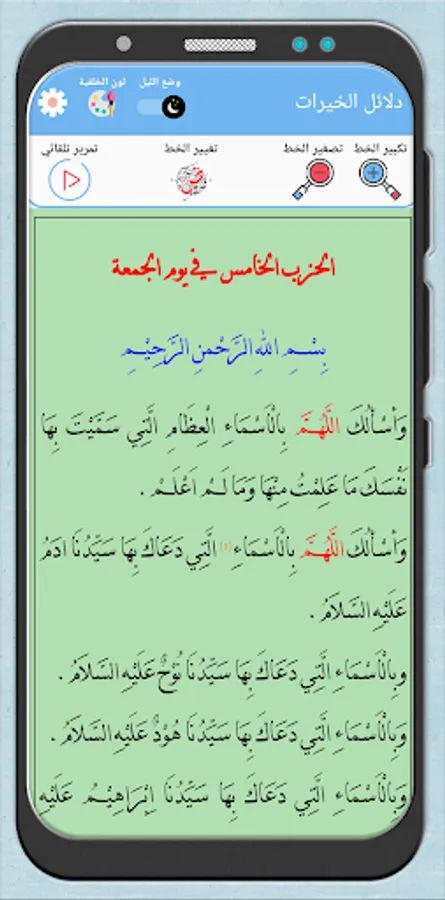 دلائل الخيرات
وضع الليل
لون الخلفية
تكبير الخط
تصغير الخط
تغيير الخط
تمرير تلقائي
الحزب الخامس في يوم الجمعة
بِسْمِ اللهِ الرَّحْمنِ الرَّحِيْمِ
وَأَسْأَلُكَ اللَّهُمَّ بِالْأَسْمَاءِ الْعِظَامِ الَّتِي سَمَّيْتَ بِهَا
نَفْسَكَ مَا عَلِمْتُ مِنْهَا وَمَا لَمْ اَعْلَمْ .
وَأَسْأَلُكَ اللَّهُمَّ بِالْأَسْمَاءِ الَّتِي دَعَاكَ بِهَا سَيِّدُنَا ادَمُ
عَلَيْهِ السَّلَامُ .
وَبِالْأَسْمَاءِ الَّتِي دَعَاكَ بِهَا سَيِّدُنَا نُوْحٌ عَلَيْهِ السَّلَامُ .
وَبِالْأَسْمَاءِ الَّتِي دَعَاكَ بِهَا سَيِّدُنَا هُوْدٌ عَلَيْهِ السَّلَامُ .
وَبِالْأَسْمَاءِ الَّتِي دَعَاكَ بِهَا سَيِّدُنَا اِبْرَاهِيْمُ عَلَيْهِ